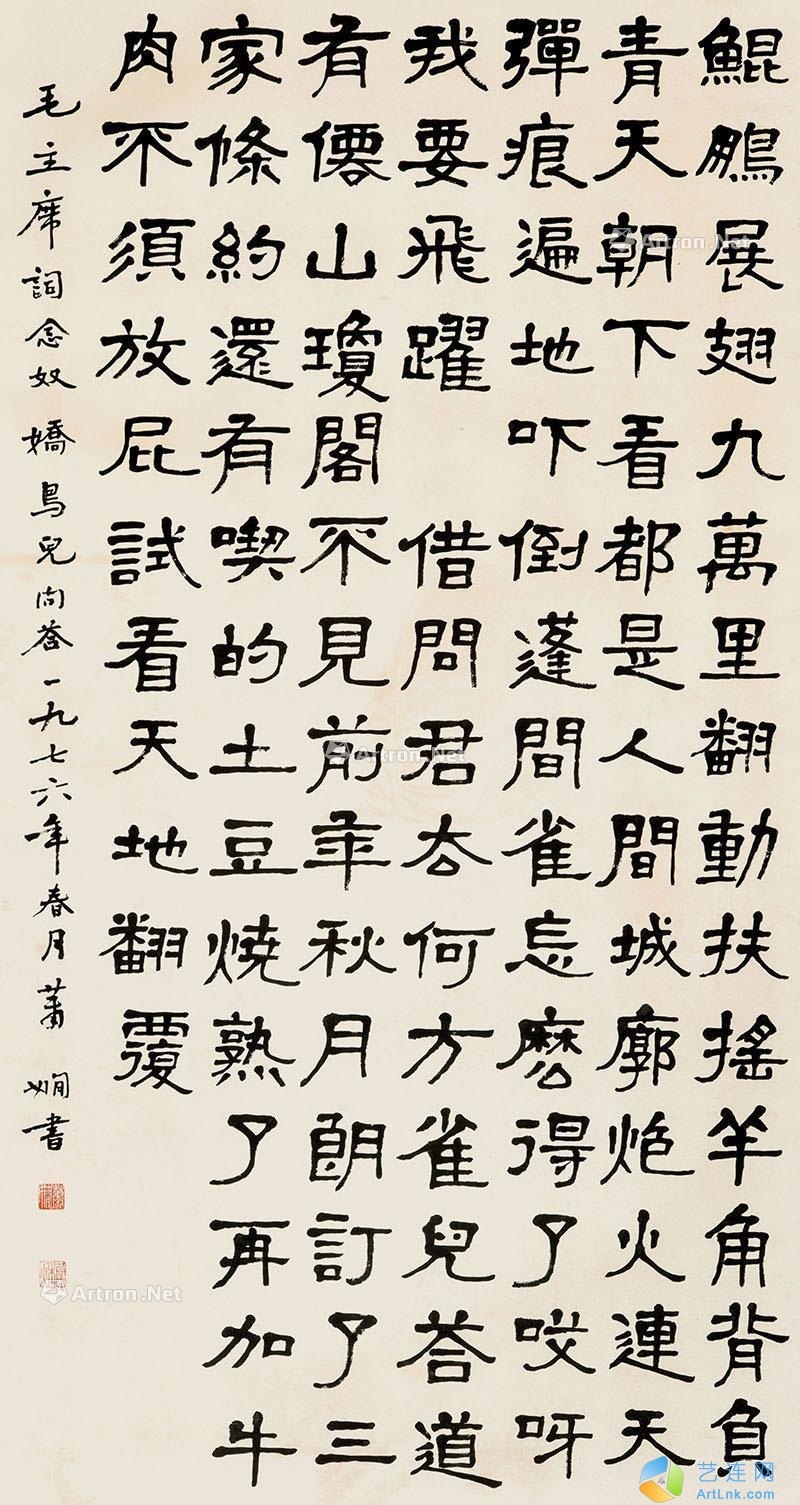 鯤鵬展翅九萬里翻動扶搖羊角背負
青天朝下看都是人間城廓炮火連天
彈痕遍地吓倒蓬間雀怎麼得了哎呀
我要飛躍 借問君去何方雀兒答道
有僊山瓊閣不見前年秋月朗訂了三
家條約還有喫的土豆燒熟了再加牛
肉不須放屁試看天地翻覆
毛主席詞念奴嬌鳥兒問答一九七六年春月蕭嫻書
Artron.Net
Artron.Net
Artron.Net
艺连网
ArtLnk.com